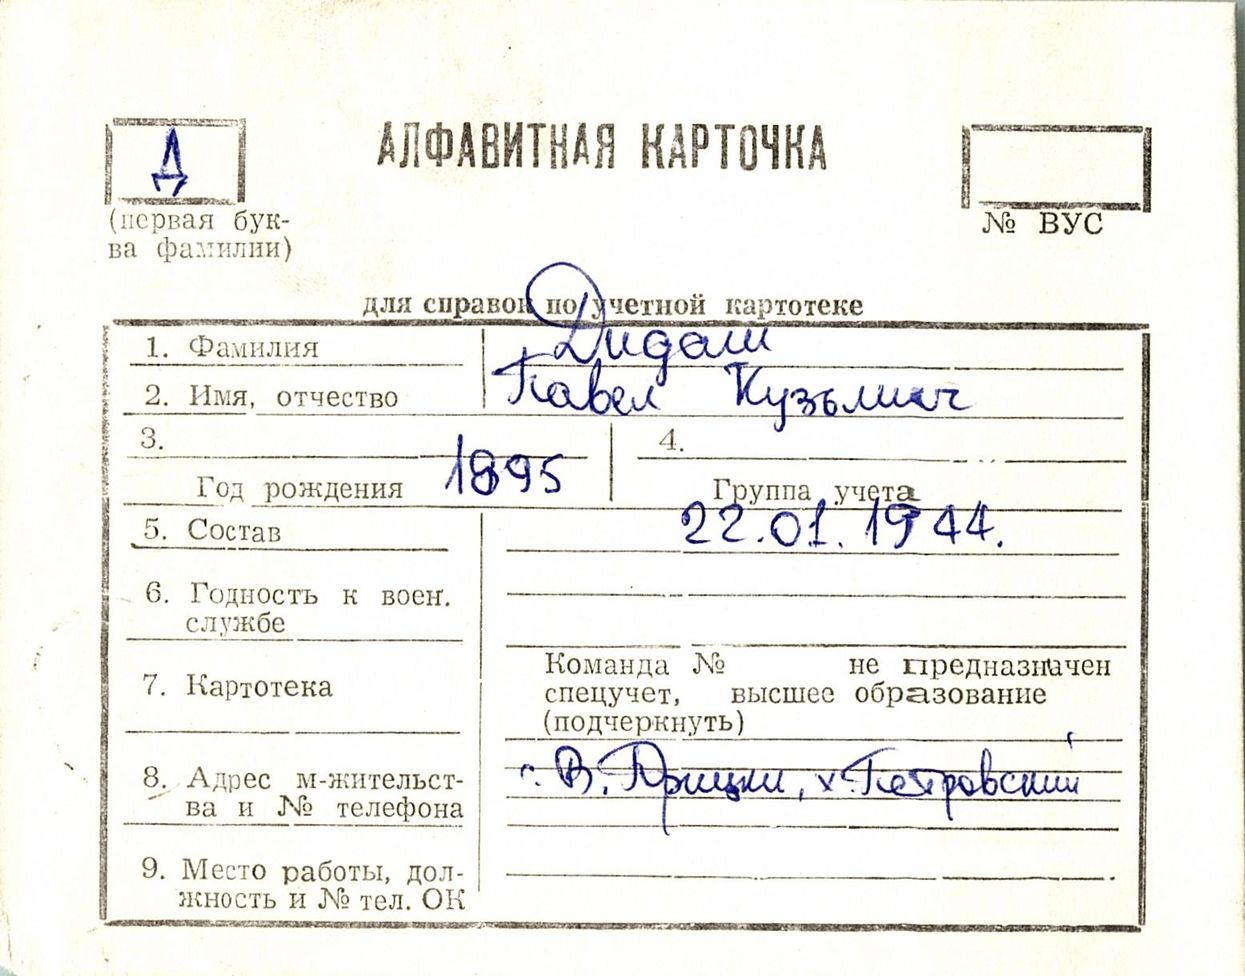 Д
АЛФАВИТНАЯ КАРТОЧКА
(первая бук-
ва фамилии)
№ ВУС
для справок по учетной картотеке
1. Фамилия Дидаш
2. Имя, отчество Павел Кузьмич
3.
Год рождения 1895
4.
Группа учета
5. Состав 22.01.1944.
6. Годность к воен.
службе
7. Картотека
Команда № не предназначен
спецучет, высшее образование
(подчеркнуть)
8. Адрес м-жительст-
ва и № телефона
г. В. , х. Петровский
9. Место работы, дол-
жность и № тел. ОК